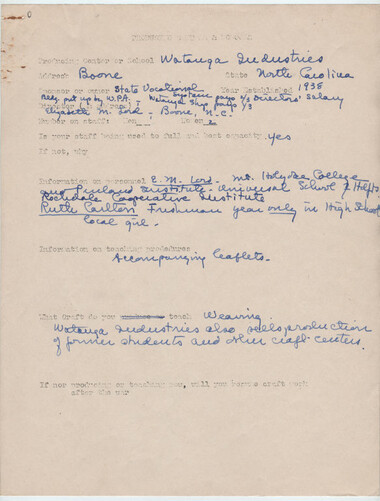 Producing Center or School Watauga Industries
Address Boone State North Carolina
Sponsor or owner State Vocational Year Established 1938
Bldg. put up by W.P.A. System pays 2/3 Directors' Salary
Watauga Shop pays 1/3
Elizabeth M. Lord - Boone, N.C.
Number on staff: Men Women 2
Is your staff being used to full and best capacity yes
If not, why
Information on personnel E.M. Lord - Mt. Holyoke College
and Penland Institute - Universal School of
Rochdale Cooperative Institute
Ruth Carlton Freshman year only in High School
local girl.
Information on teaching procedures
Accompanying leaflets.
What Craft do you teach Weaving
Watauga Industries also sells production
of former students and other craft centers.
If not producing or teaching now, will you have a craft
after the war